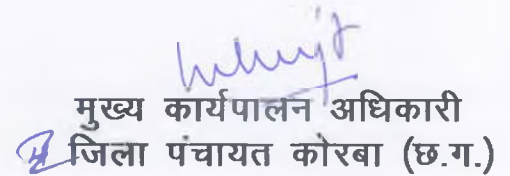 मुख्य कार्यपालन अधिकारी
जिला पंचायत कोरबा (छ.ग.)